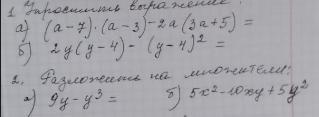 1. Упростить выражение:
а) (а-7)·(а-3)-2а(3а+5) =
б) 2y(y-4) - (y-4)² =
2. Разложить на множители:
а) 9y-y³ = б) 5x²-10xy+5y²